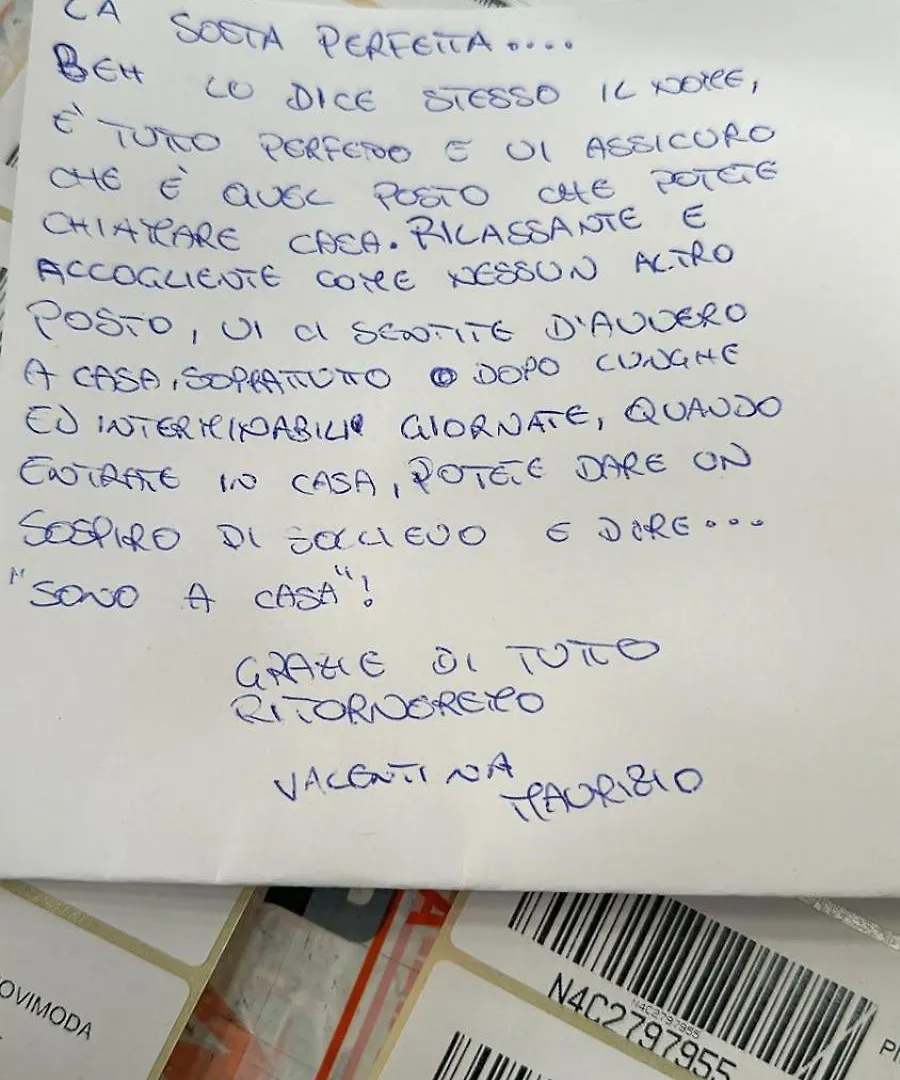 LA SOSTA PERFETTA....
BEH LO DICE STESSO IL NOME,
È TUTTO PERFETTO E VI ASSICURO
CHE È QUEL POSTO CHE POTETE
CHIAMARE CASA. RILASSANTE E
ACCOGLIENTE COME NESSUN ALTRO
POSTO, VI CI SENTITE D'AVVERO
A CASA, SOPRATTUTTO DOPO LUNGHE
ED INTERMINABILI GIORNATE, QUANDO
ENTRATE IN CASA, POTETE DARE UN
SOSPIRO DI SOLLIEVO E DIRE...
"SONO A CASA"!
GRAZIE DI TUTTO
RITORNEREMO
VALENTINA
MAURIZIO
OVIMODA
N4C2797955
N4C2797955
PI